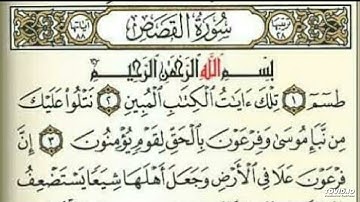 ترتيبها ٢٨ سُورَةُ القَصَصِ آياتها ٨٨
بِسْمِ اللَّهِ الرَّحْمَٰنِ الرَّحِيمِ
طسٓمٓ ١ تِلْكَ ءَايَٰتُ ٱلْكِتَٰبِ ٱلْمُبِينِ ٢ نَتْلُوا۟ عَلَيْكَ
مِن نَّبَإِ مُوسَىٰ وَفِرْعَوْنَ بِٱلْحَقِّ لِقَوْمٍ يُؤْمِنُونَ ٣ إِنَّ
فِرْعَوْنَ عَلَا فِى ٱلْأَرْضِ وَجَعَلَ أَهْلَهَا شِيَعًا يَسْتَضْعِفُ